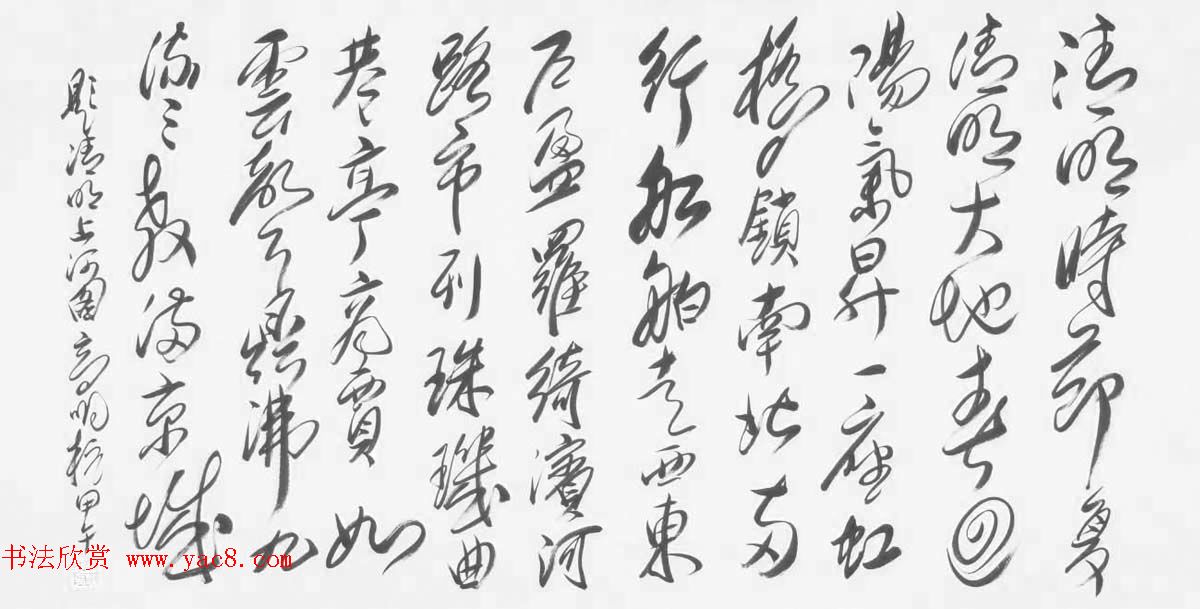 清明時節复
清明大地春回
陽氣昇一座虹
橋鎖南北两
行船舶走西東
户盈羅綺濱河
路市列珠璣曲
巷亭商賈如
雲都沸九
流三教满京城
題清明上河圖高明甲午
书法欣赏 www.yac8.com